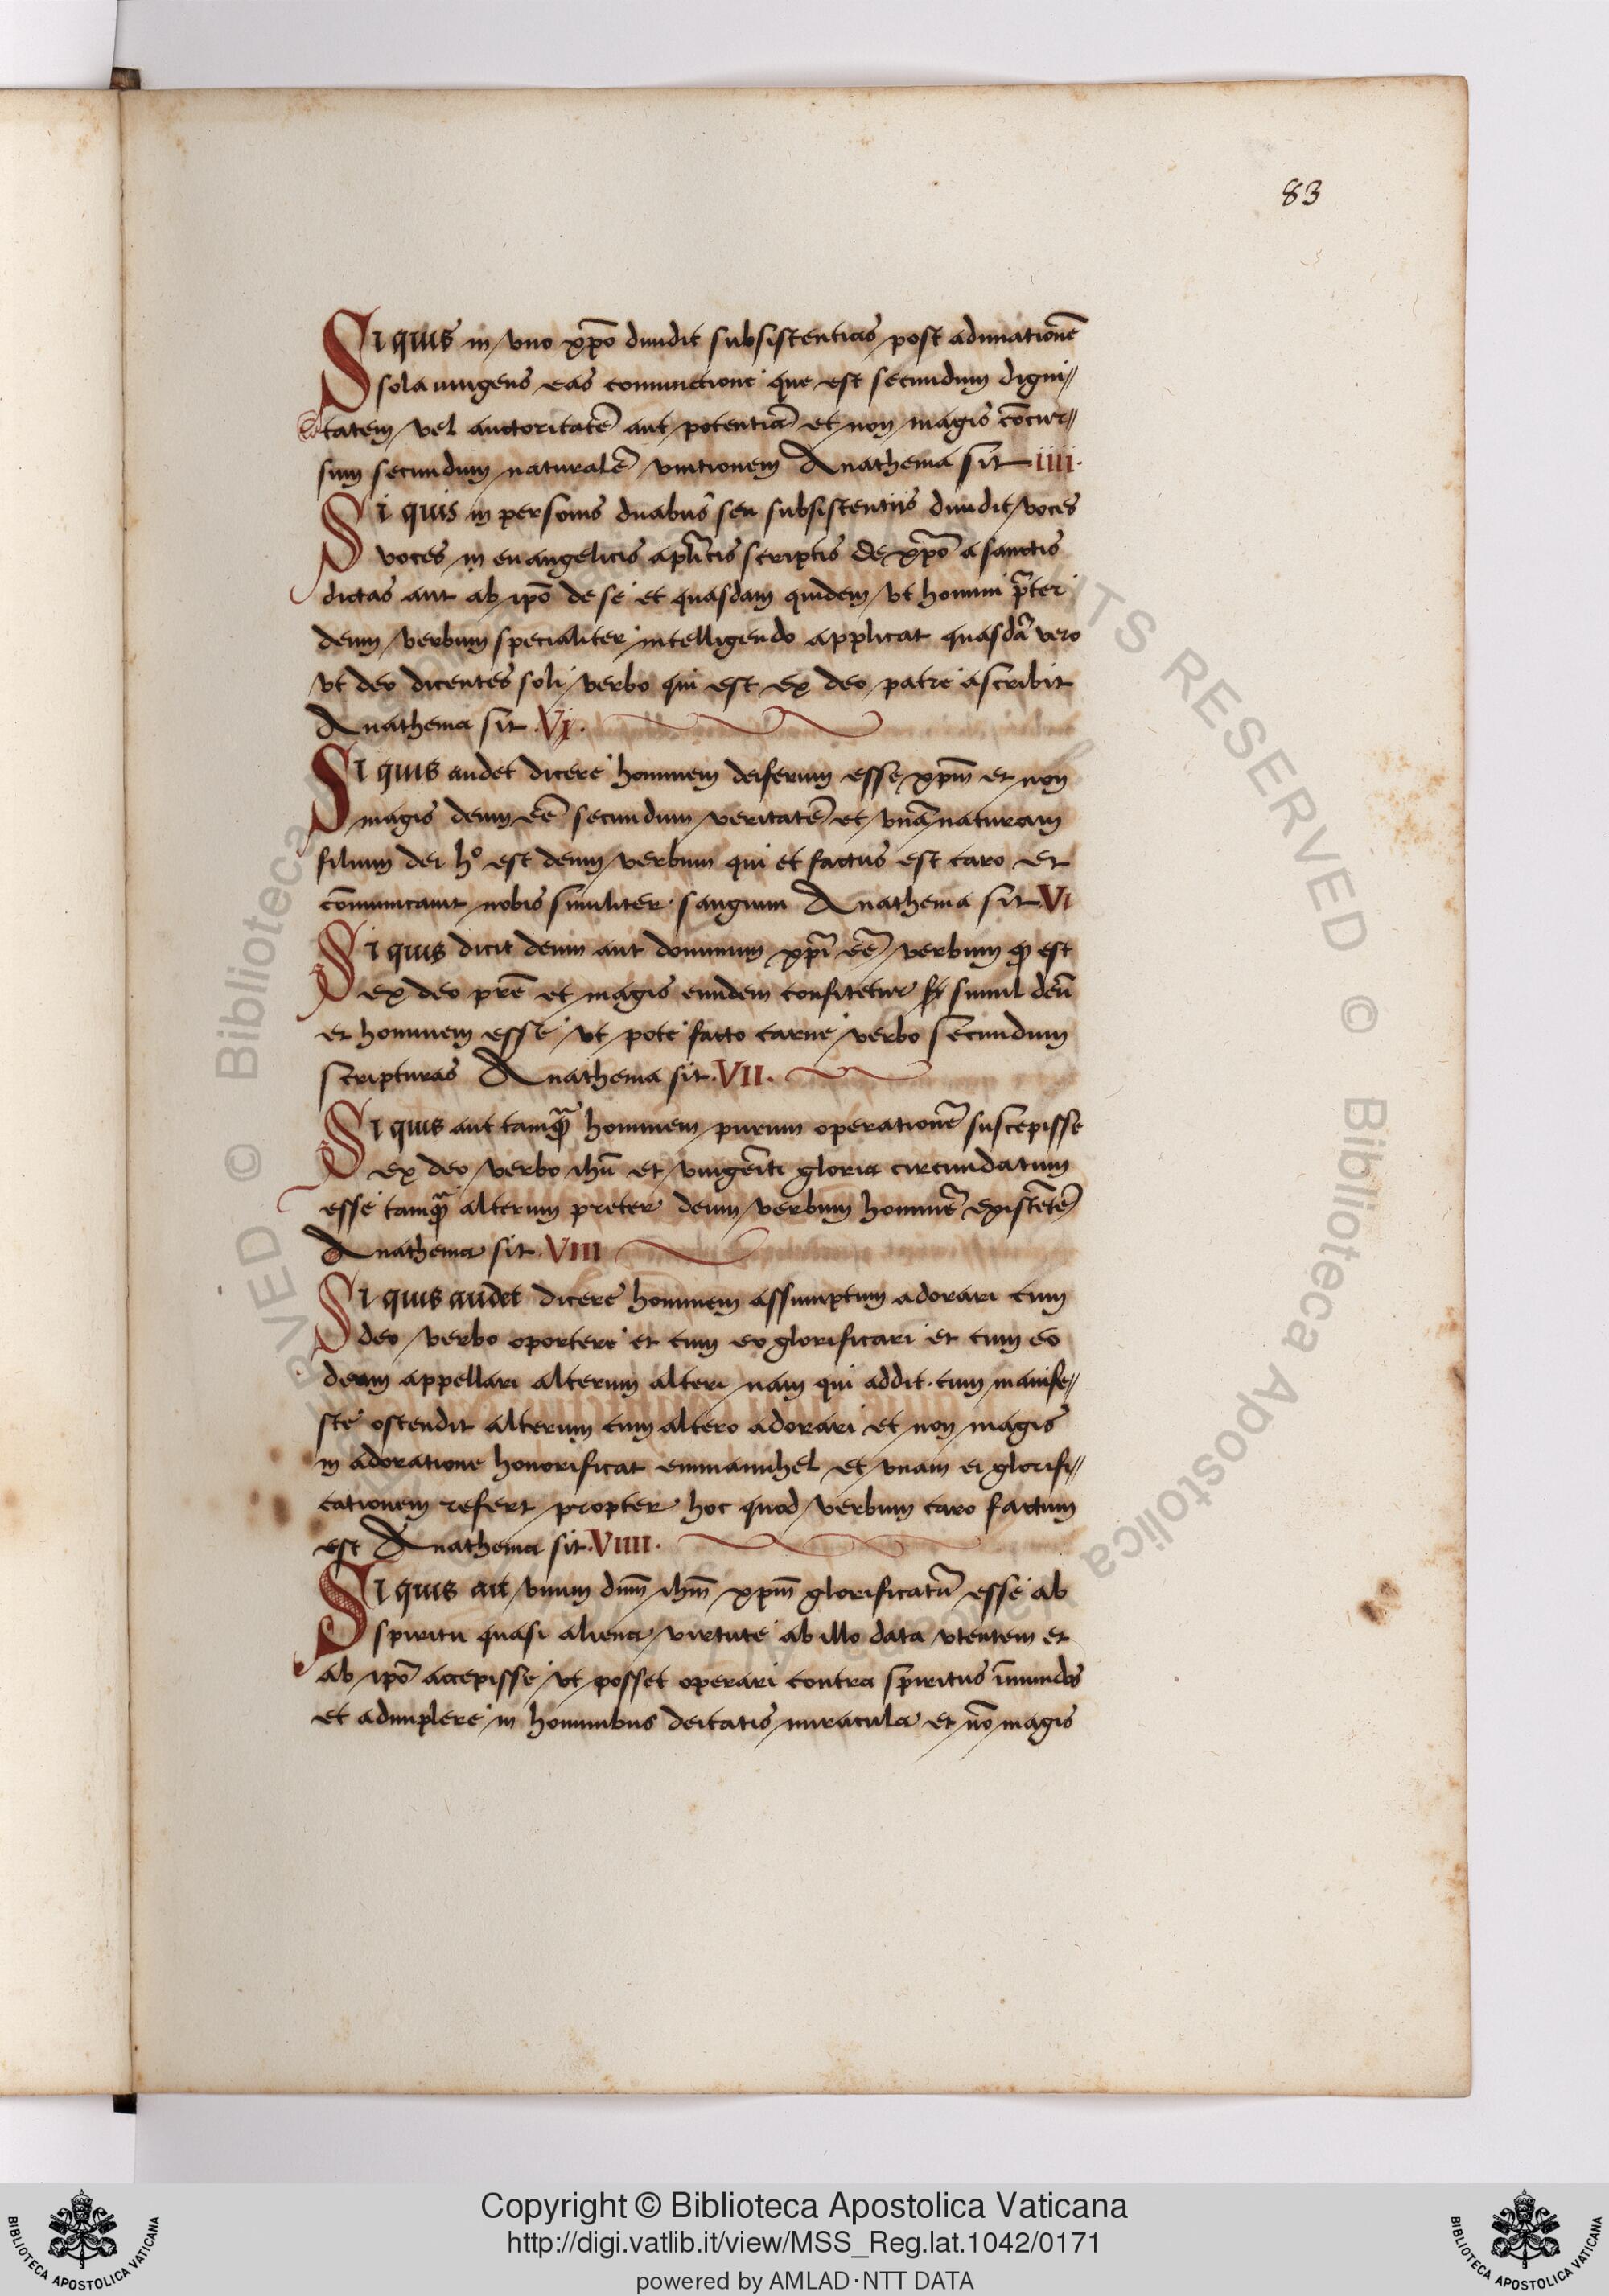 83
Si quis in vno xp̄o diuidit subsistentias post adunationē
sola iungens eas coniunctione que est secundum digni//
tatem vel auctoritatē aut potentiā et non magis cōcur//
sum secundum naturalē vnitionem Anathema sit IIII.
Si quis in personis duabus seu subsistentiis diuidit voces
voces in euangelicis apl̄icis scriptis de xp̄o a sanctis
dictas aut ab ip̄o de se et quasdam quidem vt homini p̄ter
deum verbum specialiter intelligendo applicat quasdā vero
vt deo dicentes soli verbo qui est ex deo patre ascribit
Anathema sit .VI.
Si quis audet dicere hominem deiferum esse xp̄m et non
magis deum eē secundum veritatē et vnā naturam
filium dei hº est deum verbum qui et factus est caro et
cōmunicauit nobis similiter sanguini Anathema sit VI
Si quis dicit deum aut dominum xp̄i eē verbum q̄ est
ex deo prē et magis eundem confitetur simul deū
et hominem esse vt pote facto carne verbo secundum
scripturas Anathema sit .VII.
Si quis aut tamq̄ hominem purum operationē suscepisse
ex deo verbo ihū et vnigēiti gloria circundatum
esse tamq̄ alterum preter deum verbum hominē existētē
Anathema sit VIII
Si quis audet dicere hominem assumptum adorari cum
deo verbo oportere et cum eo glorificari et cum eo
deum appellari alterum alteri nam qui addit cum manife//
ste ostendit alterum cum altero adorari et non magis
in adoratione honorificat emmanuhel et vnam ei glorifi//
cationem refert propter hoc quod verbum caro factum
est Anathema sit .VIIII.
Si quis ait vnum dn̄m ihm̄ xp̄m glorificatū esse ab
spiritu quasi aliena virtute ab illo data vtentem et
ab ip̄o accepisse vt posset operari contra spiritus īmundos
et adimplere in hominibus deitatis miracula et nō magis
© Biblioteca Apostolica
RIGHTS RESERVED © Biblioteca Apostolica
Copyright © Biblioteca Apostolica Vaticana
http://digi.vatlib.it/view/MSS_Reg.lat.1042/0171
powered by AMLAD·NTT DATA
BIBLIOTECA APOSTOLICA VATICANA
BIBLIOTECA APOSTOLICA VATICANA